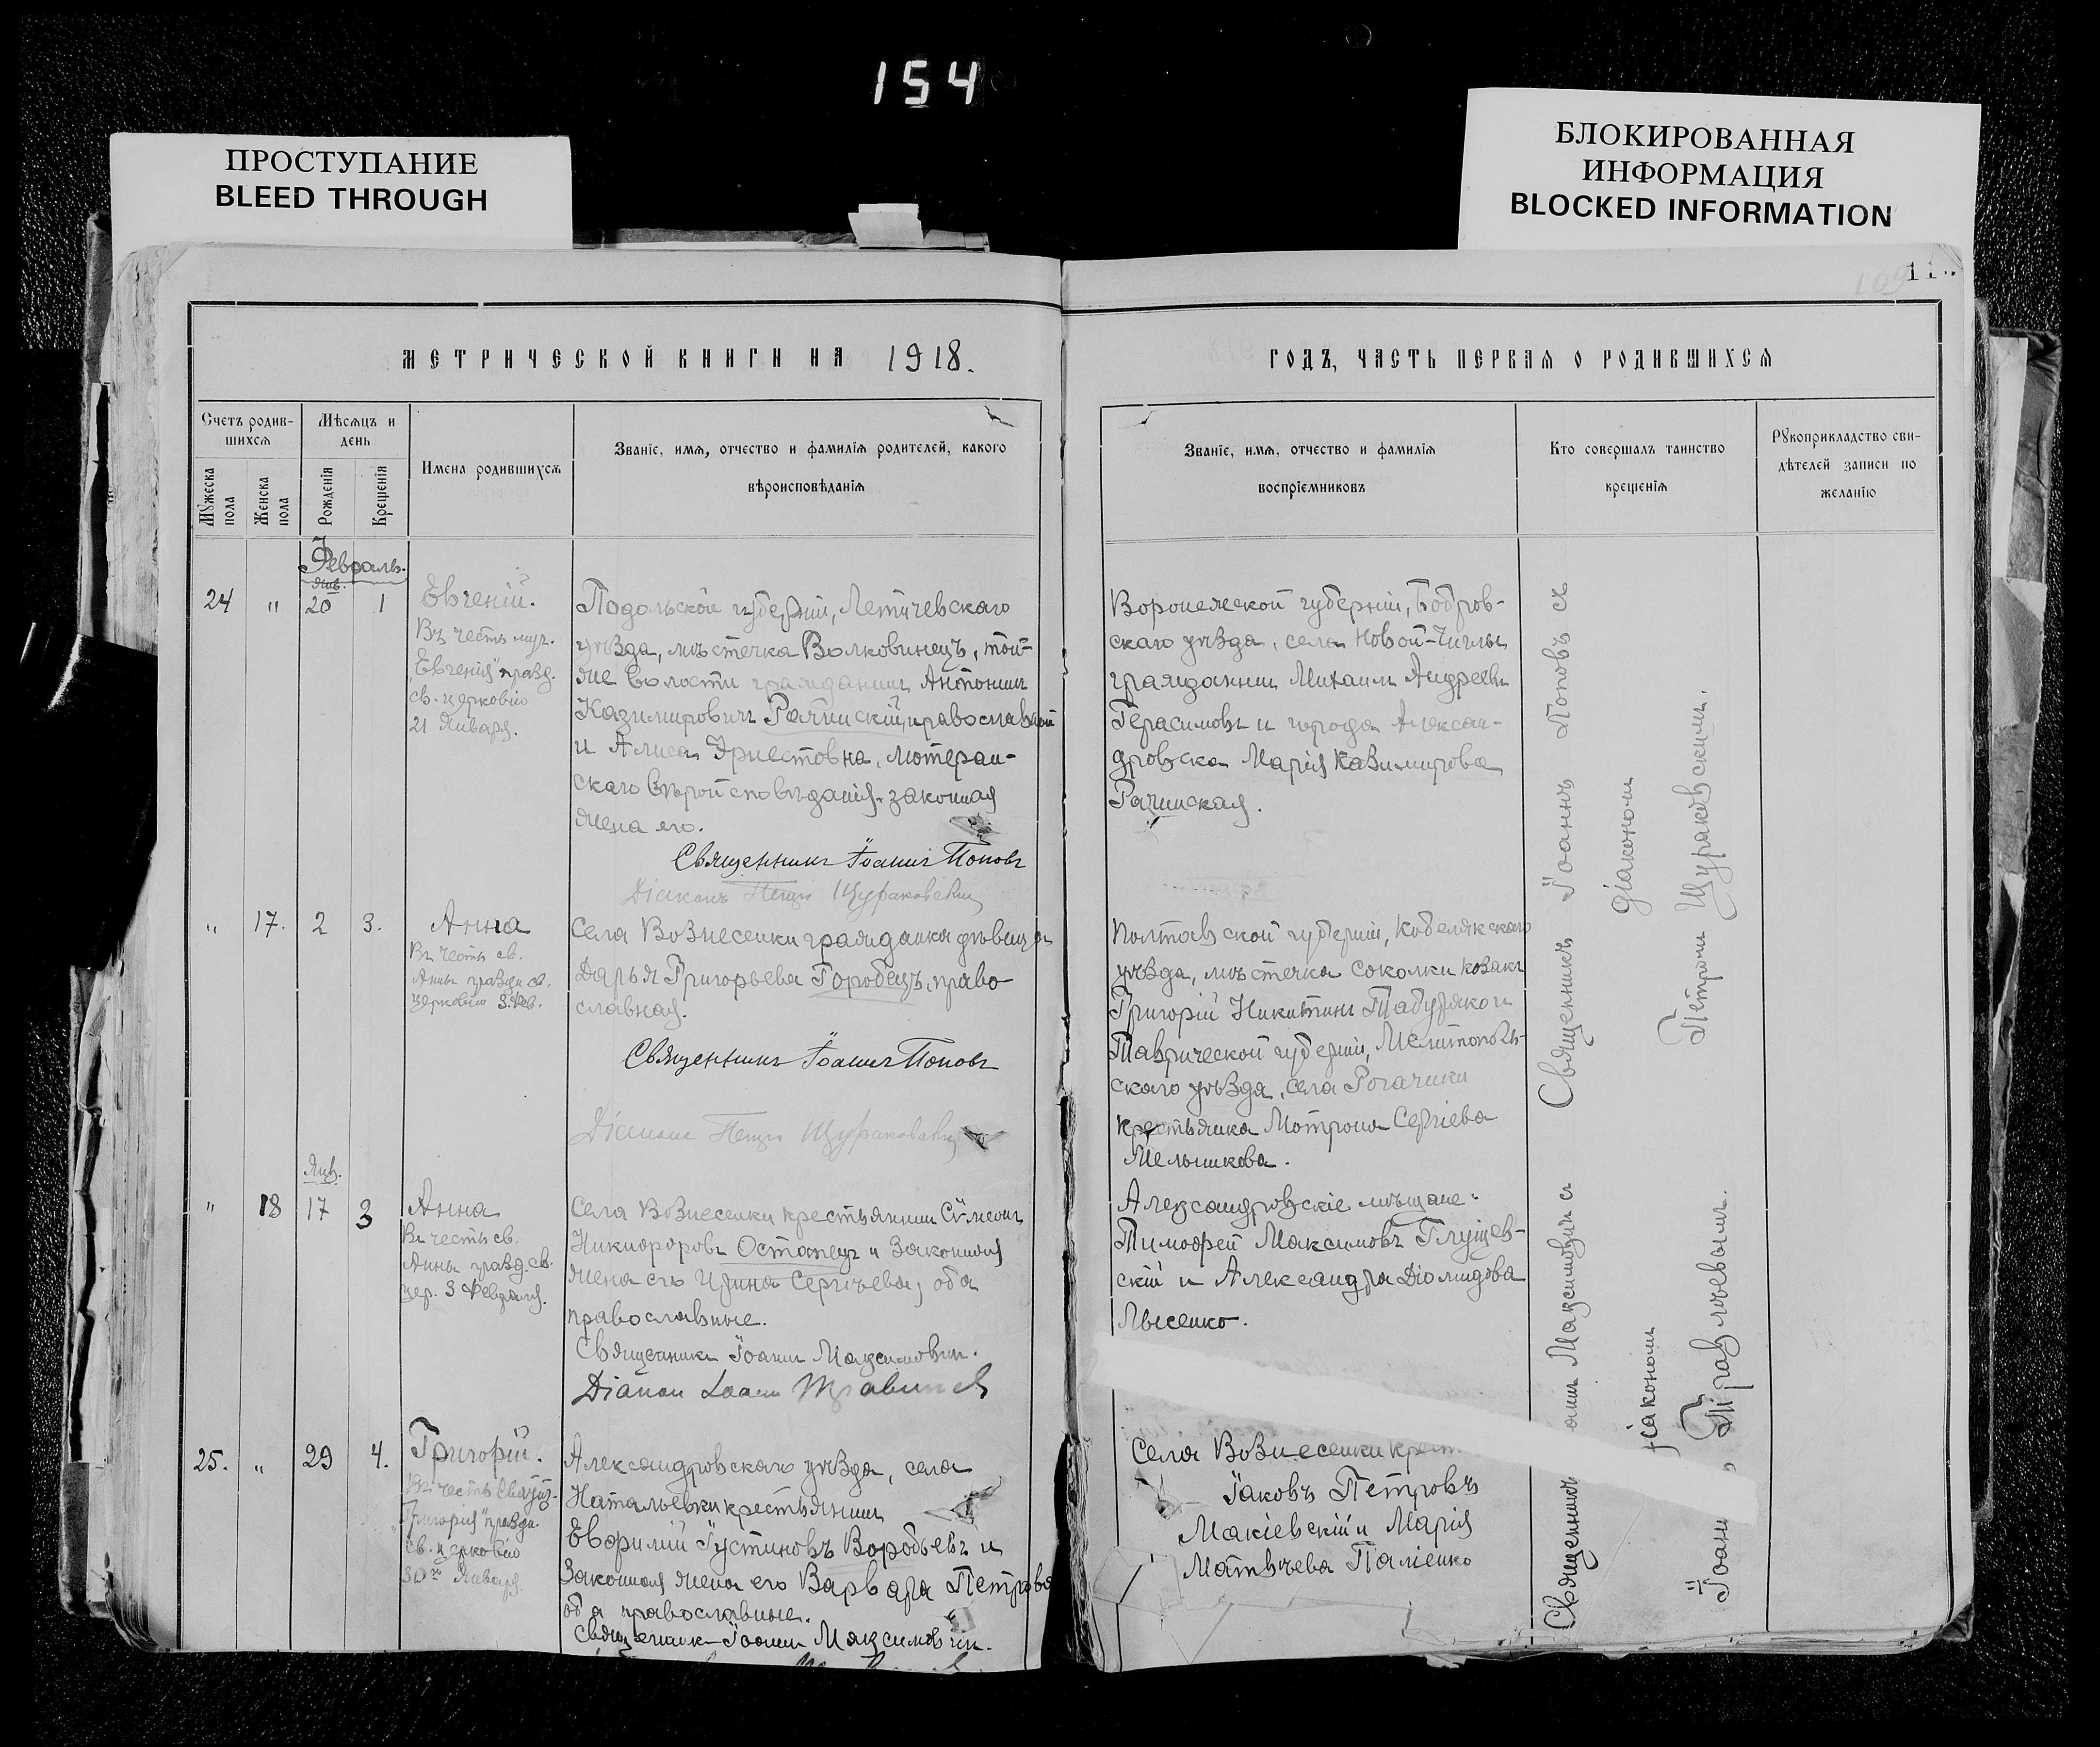 154
ПРОСТУПАНИЕ
BLEED THROUGH
БЛОКИРОВАННАЯ
ИНФОРМАЦИЯ
BLOCKED INFORMATION
МЕТРИЧЕСКОЙ КНИГИ НА 1918.
Счетъ родив-
шихся
Мѣсяцъ и
день
Мужеска
пола
Женска
пола
Рожденія
Крещенія
Имена родившихся
Званіе, имя, отчество и фамилія родителей, какого
вѣроисповѣданія
Февраль.
Янв.
24 " 20 1
Евгеній.
Въ честь муч.
Евгенія празд.
св. церковію
21 Января.
Подольской губерніи, Летичевскаго
уѣзда, мѣстечка Волковинецъ, той-
же волости гражданинъ Антонинъ
Казимировичъ Рачинскій, православный
и Алиса Эрнестовна, лютеран-
скаго вѣроисповѣданія, законная
жена его.
Священникъ Іоаннъ Поповъ
Діаконъ Петръ Щураковскій
" 17. 2 3.
Анна
Въ честь св.
Анны праздн. св.
церковію 3 Фев.
Села Вознесенки гражданка дѣвица
Дарья Григорьева Городецъ, право-
славная.
Священникъ Іоаннъ Поповъ
Діаконъ Петръ Щураковскій
Янв.
" 18 17 3
Анна
Въ честь св.
Анны празд. св.
цер. 3 Февраля.
Села Вознесенки крестьянинъ Сѵмеонъ
Никифоровъ Остапецъ и законная
жена его Ирина Сергѣева, оба
православные.
Священникъ Іоаннъ Максимовичъ.
Діаконъ Іоаннъ
25. " 29 4.
Григорій.
Въ честь Святит.
Григорія праздн.
св. церковію
30го Января.
Александровскаго уѣзда, села
Натальевки крестьянинъ
Евфимій Іустиновъ Воробьевъ и
законная жена его Варвара Петрова
оба православные.
Священникъ Іоаннъ Максимовичъ.
ГОДЪ, ЧАСТЬ ПЕРВАЯ О РОДИВШИХСЯ
Званіе, имя, отчество и фамилія
воспріемниковъ
Кто совершалъ таинство
крещенія
Рукоприкладство сви-
дѣтелей записи по
желанію
Воронежской губерніи, Бобров-
скаго уѣзда, села Новой-Чиглы
гражданинъ Михаилъ Андреевъ
Герасимовъ и города Алексан-
дровска Марія Казимирова
Рачинская.
Полтавской губерніи, Кобелякскаго
уѣзда, мѣстечка Соколки козакъ
Григорій Никитинъ и
Таврической губерніи, Мелитополь-
скаго уѣзда, села Рогачики
крестьянка Мотрона Сергіева
Мельникова.
Александровскіе мѣщане:
Тимофей Максимовъ Глущев-
скій и Александра Діомидова
Лысенко.
Села Вознесенки
Іаковъ Петровъ
Макіевскій и Марія
Матвѣева Паліенко
Священникъ Іоаннъ Поповъ съ
діакономъ
Петромъ Щураковскимъ.
Священникъ Максимовичъ съ
діакономъ